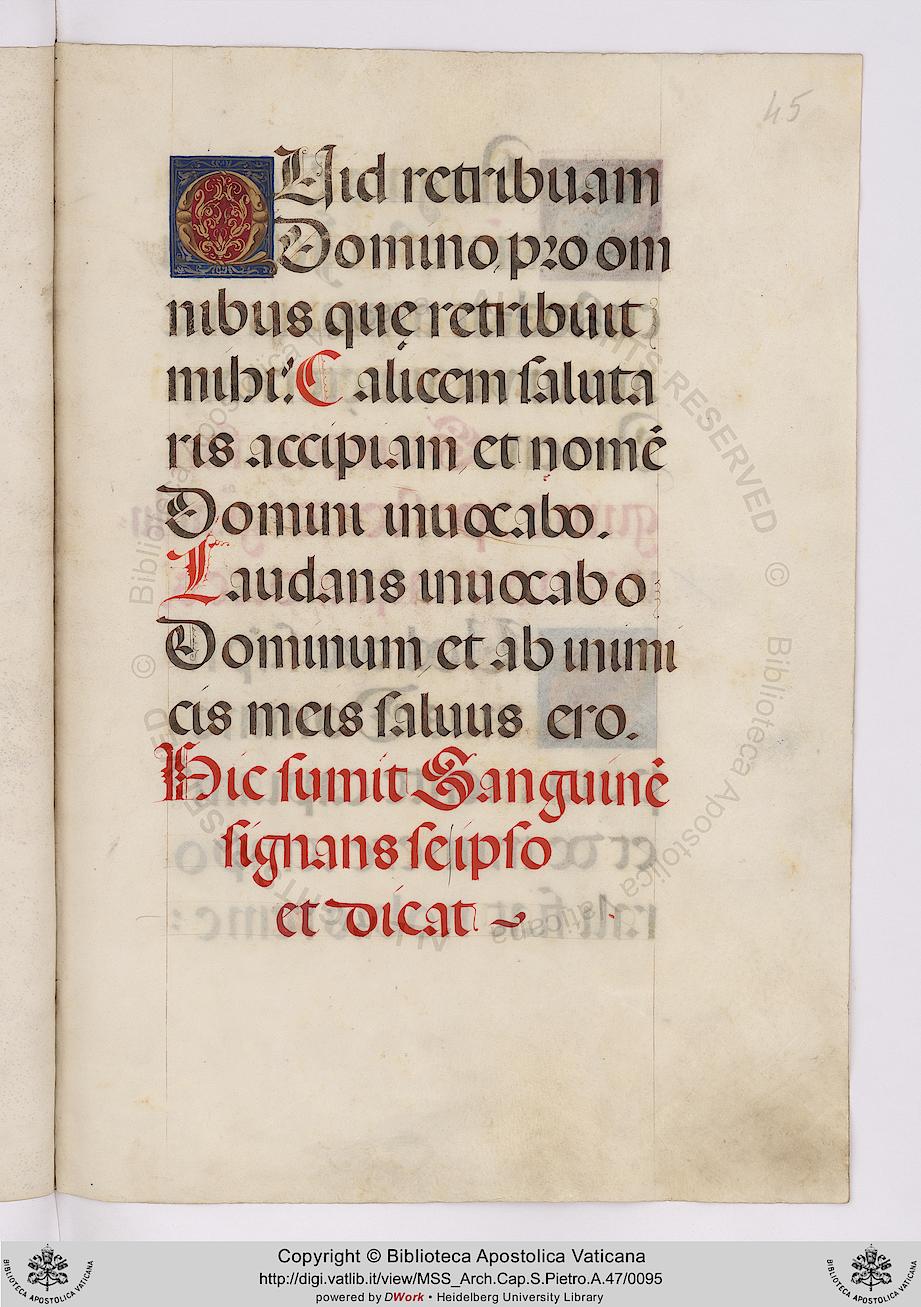 45
QUid retribuam
Domino, pro om
nibus quę retribuit
mihi? Calicem saluta
ris accipiam et nomē
Domini inuocabo.
Laudans inuocabo
Dominum et ab inimi
cis meis saluus ero.
Hic sumit Sanguinē
signans seipso
et dicat ~
© Biblioteca Apostolica Vaticana ALL RIGHTS RESERVED
© Biblioteca Apostolica Vaticana ALL RIGHTS RESERVED
BIBLIOTECA APOSTOLICA VATICANA
Copyright © Biblioteca Apostolica Vaticana
http://digi.vatlib.it/view/MSS_Arch.Cap.S.Pietro.A.47/0095
powered by DWork • Heidelberg University Library
BIBLIOTECA APOSTOLICA VATICANA